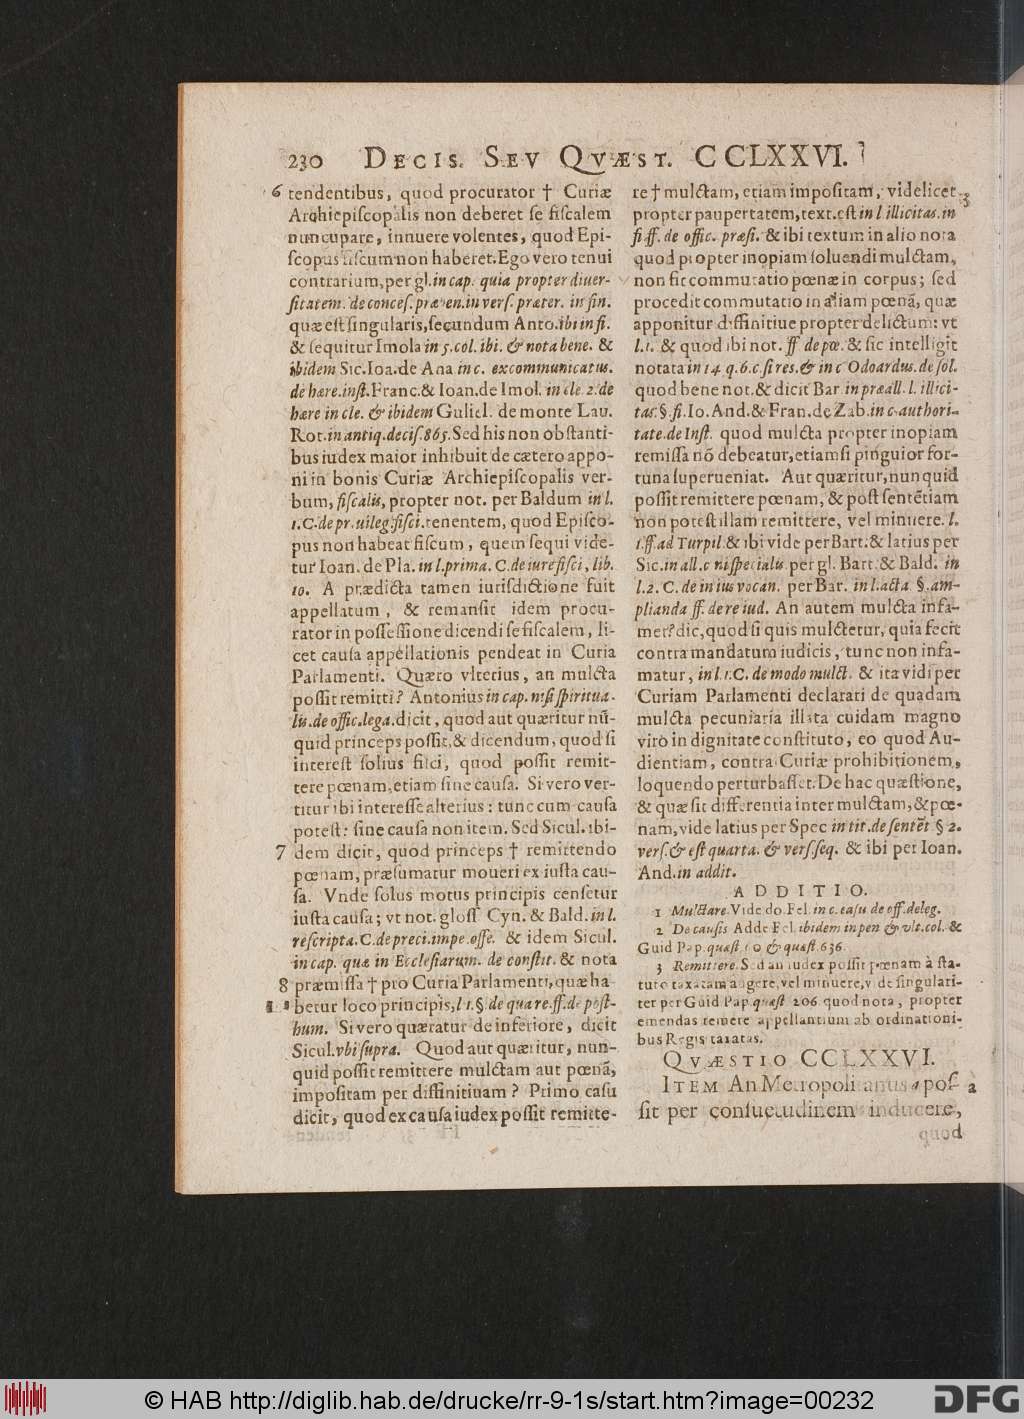 230 DECIS. SEV QVÆST. CCLXXVI.
6 tendentibus, quod procurator † Curiæ
Archiepiſcopalis non deberet ſe fiſcalem
nuncupare, innuere volentes, quod Epi-
ſcopus fiſcum non haberet. Ego vero tenui
contrarium, per gl. in cap. quia propter diuer-
ſitatem. de conceſ. præben. in verſ. præter. in fin.
quæ eſt ſingularis, ſecundum Anto. ibi in fi.
& ſequitur Imola in 5. col. ibi. & nota bene. &
ibidem Sic. Ioa. de Ana in c. excommunicatus.
de hære. inſt. Franc. & Ioan. de Imol. in cle. 2. de
hære in cle. & ibidem Guliel. de monte Lau.
Rot. in antiq. deciſ. 865. Sed his non obſtanti-
bus iudex maior inhibuit de cætero appo-
ni in bonis Curiæ Archiepiſcopalis ver-
bum, fiſcalis, propter not. per Baldum in l.
1. C. de priuileg. fiſci. tenentem, quod Epiſco-
pus non habeat fiſcum, quem ſequi vide-
tur Ioan. de Pla. in l. prima. C. de iure fiſci, lib.
10. A prædicta tamen iuriſdictione fuit
appellatum, & remanſit idem procu-
rator in poſſeſſione dicendi ſe fiſcalem, li-
cet cauſa appellationis pendeat in Curia
Parlamenti. Quæro vlterius, an mulcta
poſſit remitti? Antonius in cap. niſi ſpiritua-
lis. de offic. lega. dicit, quod aut quæritur nũ-
quid princeps poſſit, & dicendum, quod ſi
intereſt ſolius fiſci, quod poſſit remit-
tere pœnam, etiam ſine cauſa. Si vero ver-
titur ibi intereſſe alterius: tunc cum cauſa
poteſt: ſine cauſa non item. Sed Sicul. ibi-
7 dem dicit, quod princeps † remittendo
pœnam, præſumatur moueri ex iuſta cau-
ſa. Vnde ſolus motus principis cenſetur
iuſta cauſa; vt not. gloſſ. Cyn. & Bald. in l.
reſcripta. C. de preci. impe. offe. & idem Sicul.
in cap. quæ in Eccleſiarum. de conſtit. & nota
8 præmiſſa † pro Curia Parlamenti, quæ ha-
betur loco principis, l. 1. §. de qua re. ff. de poſt-
hum. Si vero quæratur de inferiore, dicit
Sicul. vbi ſupra. Quod aut quæritur, nun-
quid poſſit remittere mulctam aut pœnã,
impoſitam per diffinitiuam? Primo caſu
dicit, quod ex cauſa iudex poſſit remitte-
re † mulctam, etiam impoſitam, videlicet 3
propter paupertatem, text. eſt in l. illicitas. in
fi. ff. de offic. præſi. & ibi textum in alio nota
quod propter inopiam ſoluendi mulctam,
non fit commutatio pœnæ in corpus; ſed
procedit commutatio in aliam pœnã, quæ
apponitur diffinitiue propter delictum: vt
l. 1. & quod ibi not. ff. de pœ. & ſic intelligit
notata in 14. q. 6. c. ſi res. & in c. Odoardus. de ſol.
quod bene not. & dicit Bar. in præall. l. illici-
tas. §. fi. Io. And. & Fran. de Zab. in c. authori-
tate. de Inſt. quod mulcta propter inopiam
remiſſa nõ debeatur, etiamſi pinguior for-
tuna ſuperueniat. Aut quæritur, nunquid
poſſit remittere pœnam, & poſt ſentẽtiam
non poteſt illam remittere, vel minuere. l.
1. ff. ad Turpil. & ibi vide per Bart. & latius per
Sic. in all. c. ni ſpecialis. per gl. Bart. & Bald. in
l. 2. C. de in ius vocan. per Bar. in l. acta. §. am-
plianda ff. de re iud. An autem mulcta infa-
met? dic, quod ſi quis mulctetur, quia fecit
contra mandatum iudicis, tunc non infa-
matur, in l. 1. C. de modo mulct. & ita vidi per
Curiam Parlamenti declarari de quadam
mulcta pecuniaria illata cuidam magno
viro in dignitate conſtituto, eo quod Au-
dientiam, contra Curiæ prohibitionem,
loquendo perturbaſſet. De hac quæſtione,
& quæ ſit differentia inter mulctam, & pœ-
nam, vide latius per Spec. in tit. de ſentẽt. §. 2.
verſ. & eſt quarta. & verſ. ſeq. & ibi per Ioan.
And. in addit.
ADDITIO.
1 Mulctare. Vide do. Fel. in c. caſu de off. deleg.
2 De cauſis Adde Fel. ibidem in pen. & vlt. col. &
Guid. Pap. quæſt. & quæſt. 636.
3 Remittere. Sed an iudex poſſit pœnam à ſta-
tuto taxatam augere, vel minuere, vide ſingulari-
ter per Guid. Pap. quæſt. 206. quod nota, propter
emendas temere appellantium ab ordinationi-
bus Regis taxatas.
QVÆSTIO CCLXXVI.
ITEM An Metropolitanus poſ- 2
ſit per conſuetudinem inducere,
quod
© HAB http://diglib.hab.de/drucke/rr-9-1s/start.htm?image=00232
DFG